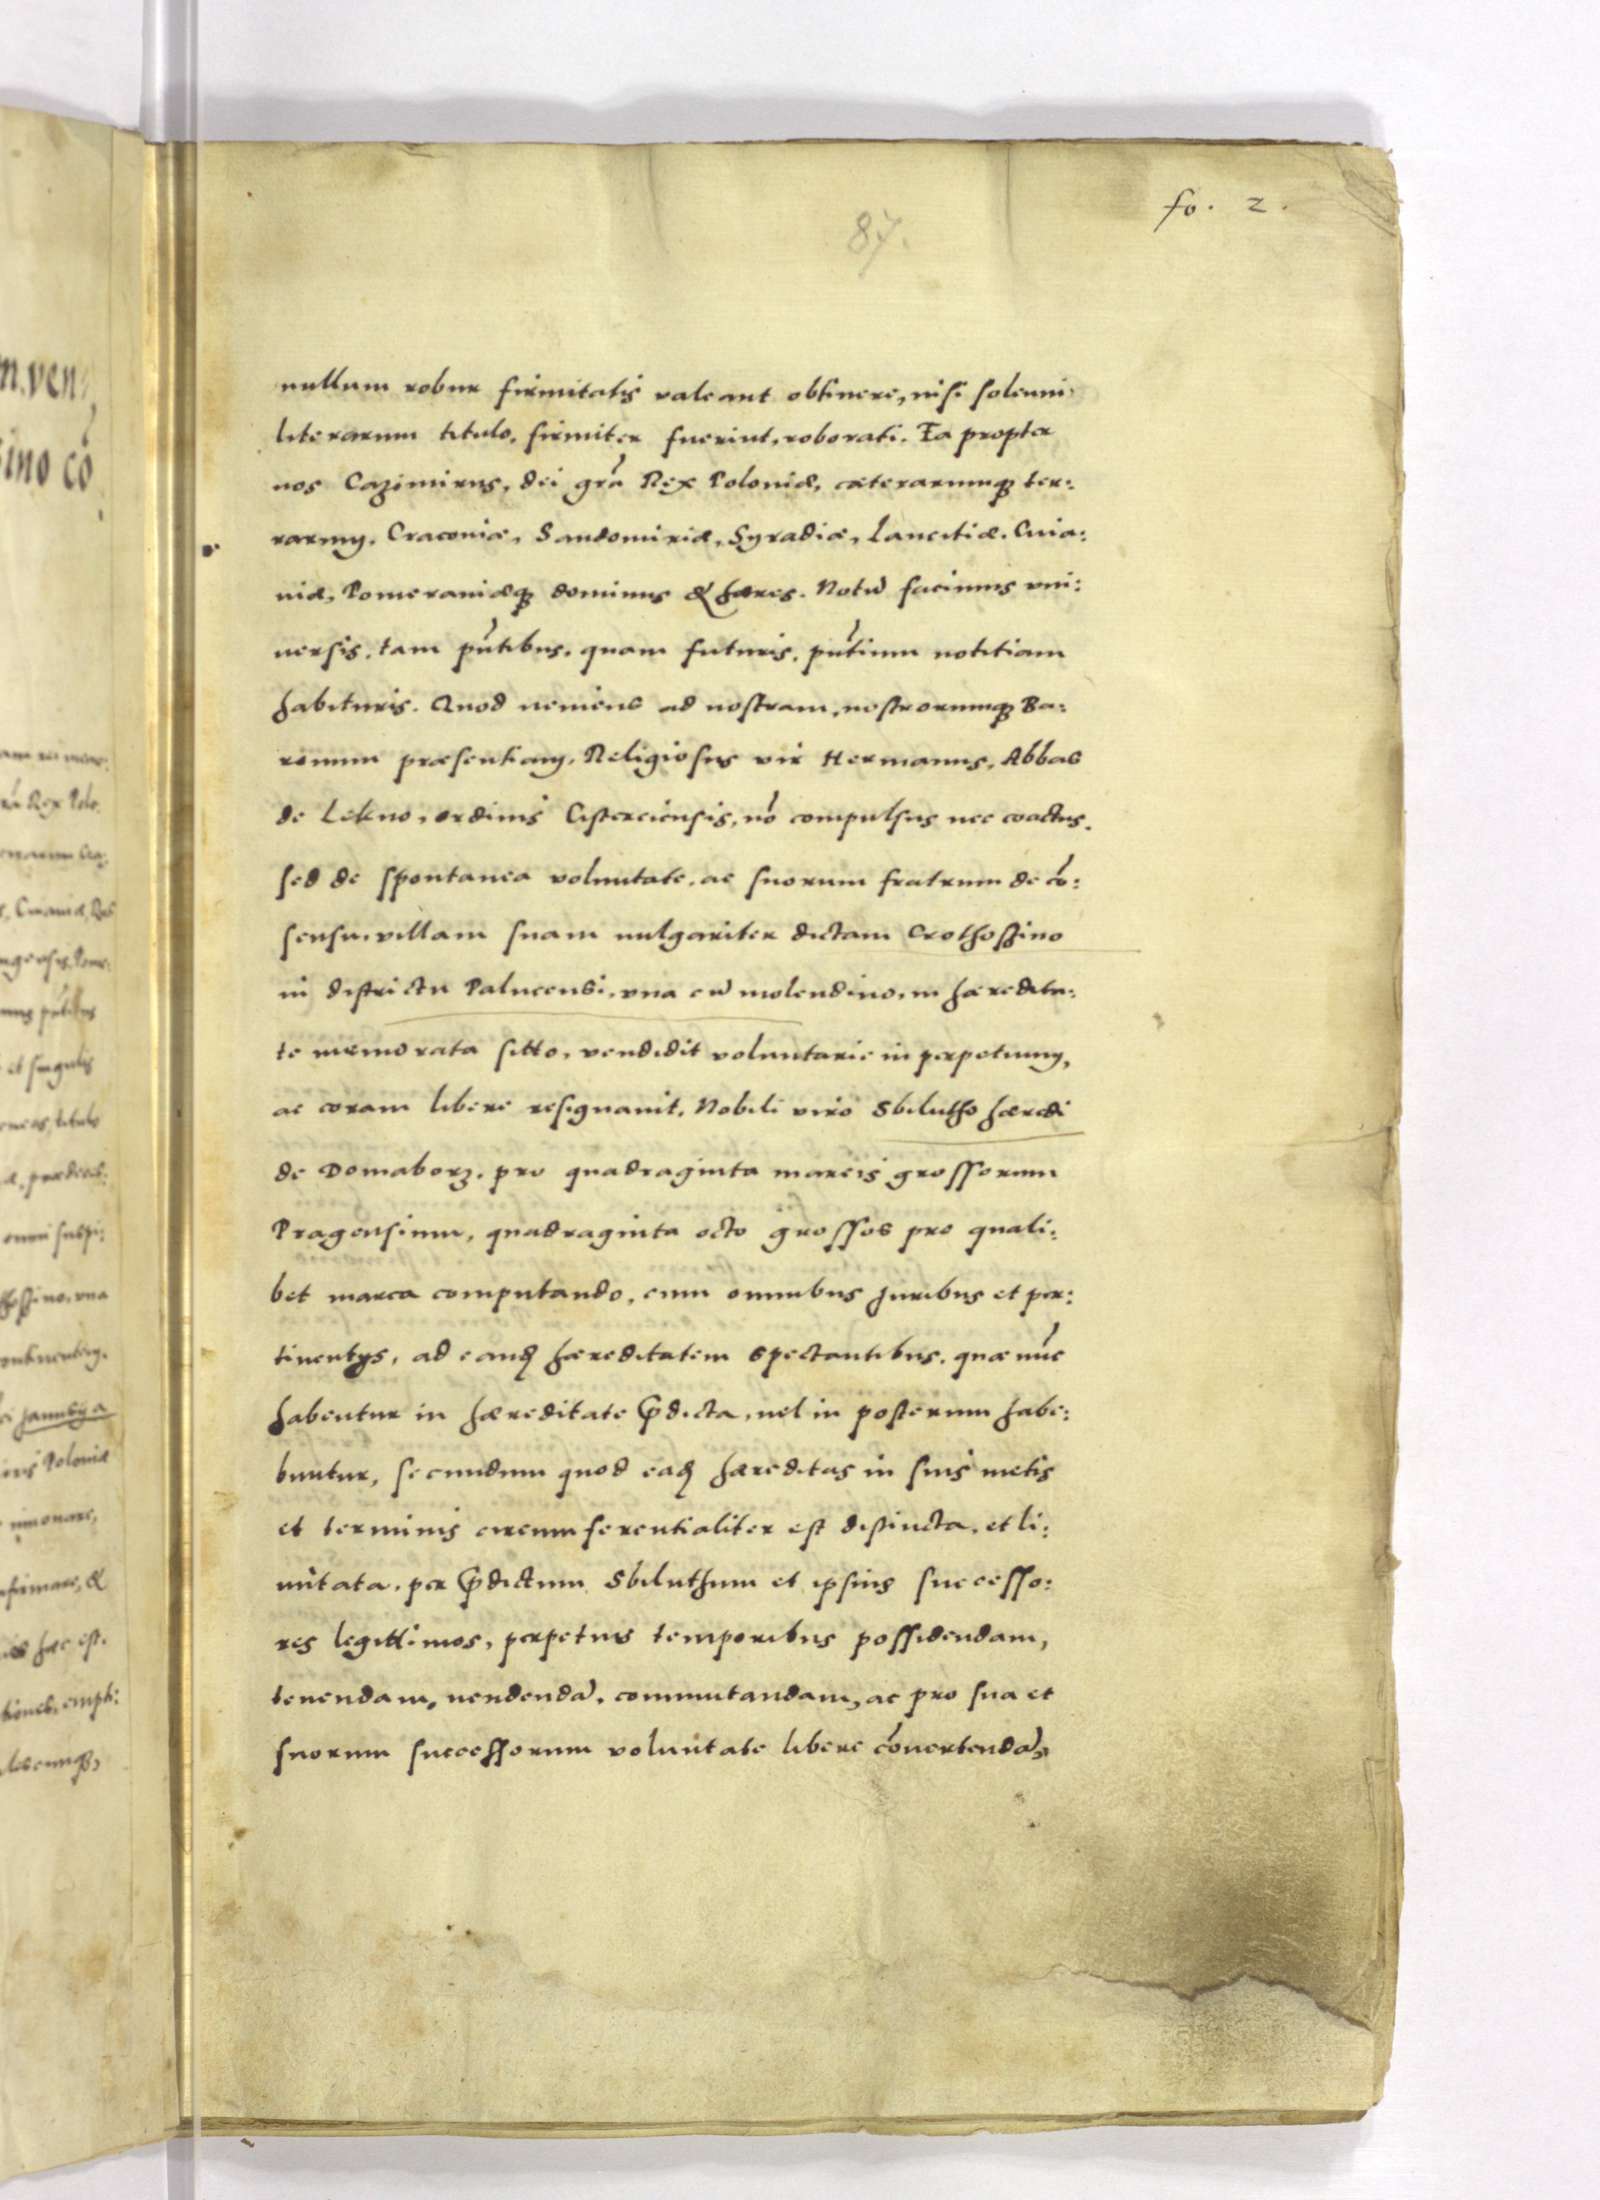 fo. 2.
87.
nullum robur firmitatis valeant obtinere, nisi solenni
literarum titulo, firmiter fuerint, roborati. Ea propter
nos Cazimirus, dei grã Rex Poloniæ, cæterarumq; ter:
rarum, Cracouiæ, Sandomiriæ, Syradiæ, Lancitiæ. Cuia:
uiæ, Pomeraniæq; dominus & hæres. Notũ facimus vni:
uersis, tam pñtibus, quam futuris, pñtium notitiam
habituris. Quod ueniens ad nostram, nostrorumq; Ba:
ronum præsentiam, Religiosus vir Hermanus, Abbas
de Lekno, ordinis Cisterciensis, nõ compulsus nec coactus.
sed de spontanea voluntate, ac suorum fratrum de cõ:
sensu, villam suam uulgariter dictam Crothoszino
in districtu Palucensi, vna cũ molendino, in hæredita:
te memorata sitto, vendidit voluntarie in perpetuum,
ac coram libere resignauit. Nobili viro Sbilutho hæredi
de Domaborz, pro quadraginta marcis grossorum
Pragensium, quadraginta octo grossos pro quali:
bet marca computando, cum omnibus juribus et per:
tinentys, ad eandẽ hæreditatem spectantibus, quæ nũc
habentur in hæreditate p̃dicta, uel in posterum habe:
buntur, secundum quod eadẽ hæreditas in suis metis
et terminis circumferentialiter est distincta, et li:
mitata, per p̃dictum Sbiluthum et ipsius successo:
res legittimos, perpetuis temporibus possidendam,
tenendam, uendendã, commutandam, ac pro sua et
suorum successorum voluntate libere cõuertendã,